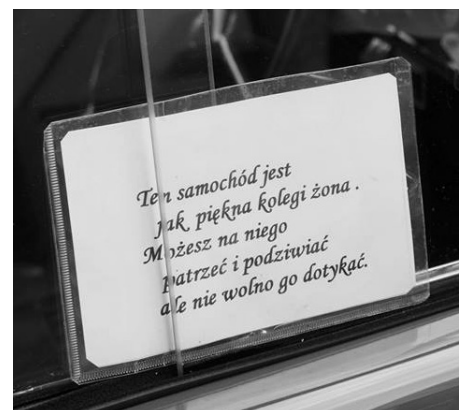 Ten samochód jest
jak piękna kolegi żona .
Możesz na niego
patrzeć i podziwiać
ale nie wolno go dotykać.